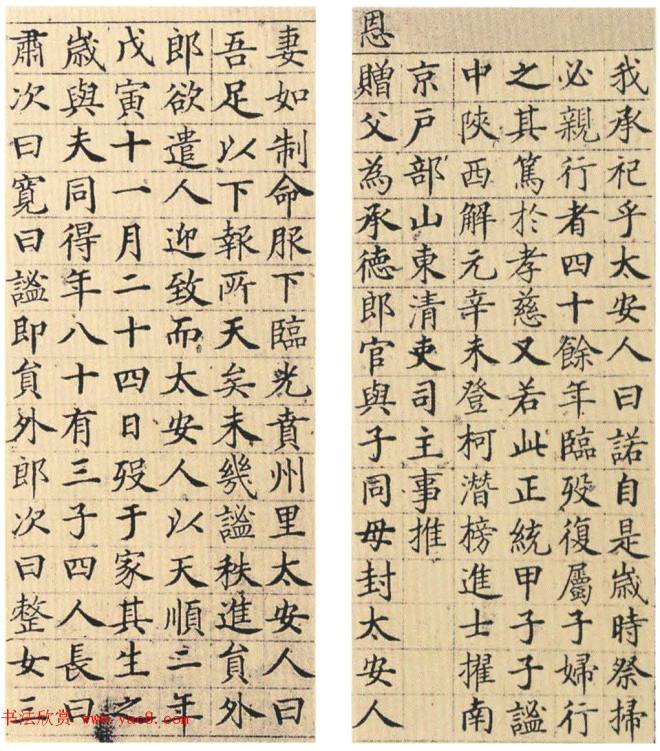 我承祀乎太安人曰諾自是歲時祭掃
必親行者四十餘年臨歿復屬子婦行
之其篤於孝慈又若此正統甲子子謐
中陝西解元辛未登柯潛榜進士擢南
京戶部山東清吏司主事推
恩
贈父為承德郎官與子同母封太安人
妻如制命服下臨光賁州里太安人曰
吾足以下報所天矣未幾謐秩進貟外
郎欲遣人迎致而太安人以天順三年
戊寅十一月二十四日歿于家其生之
歲與夫同得年八十有三子四人長曰
肅次曰寬曰謐即貟外郎次曰整女二
书法欣赏 www.yac8.com